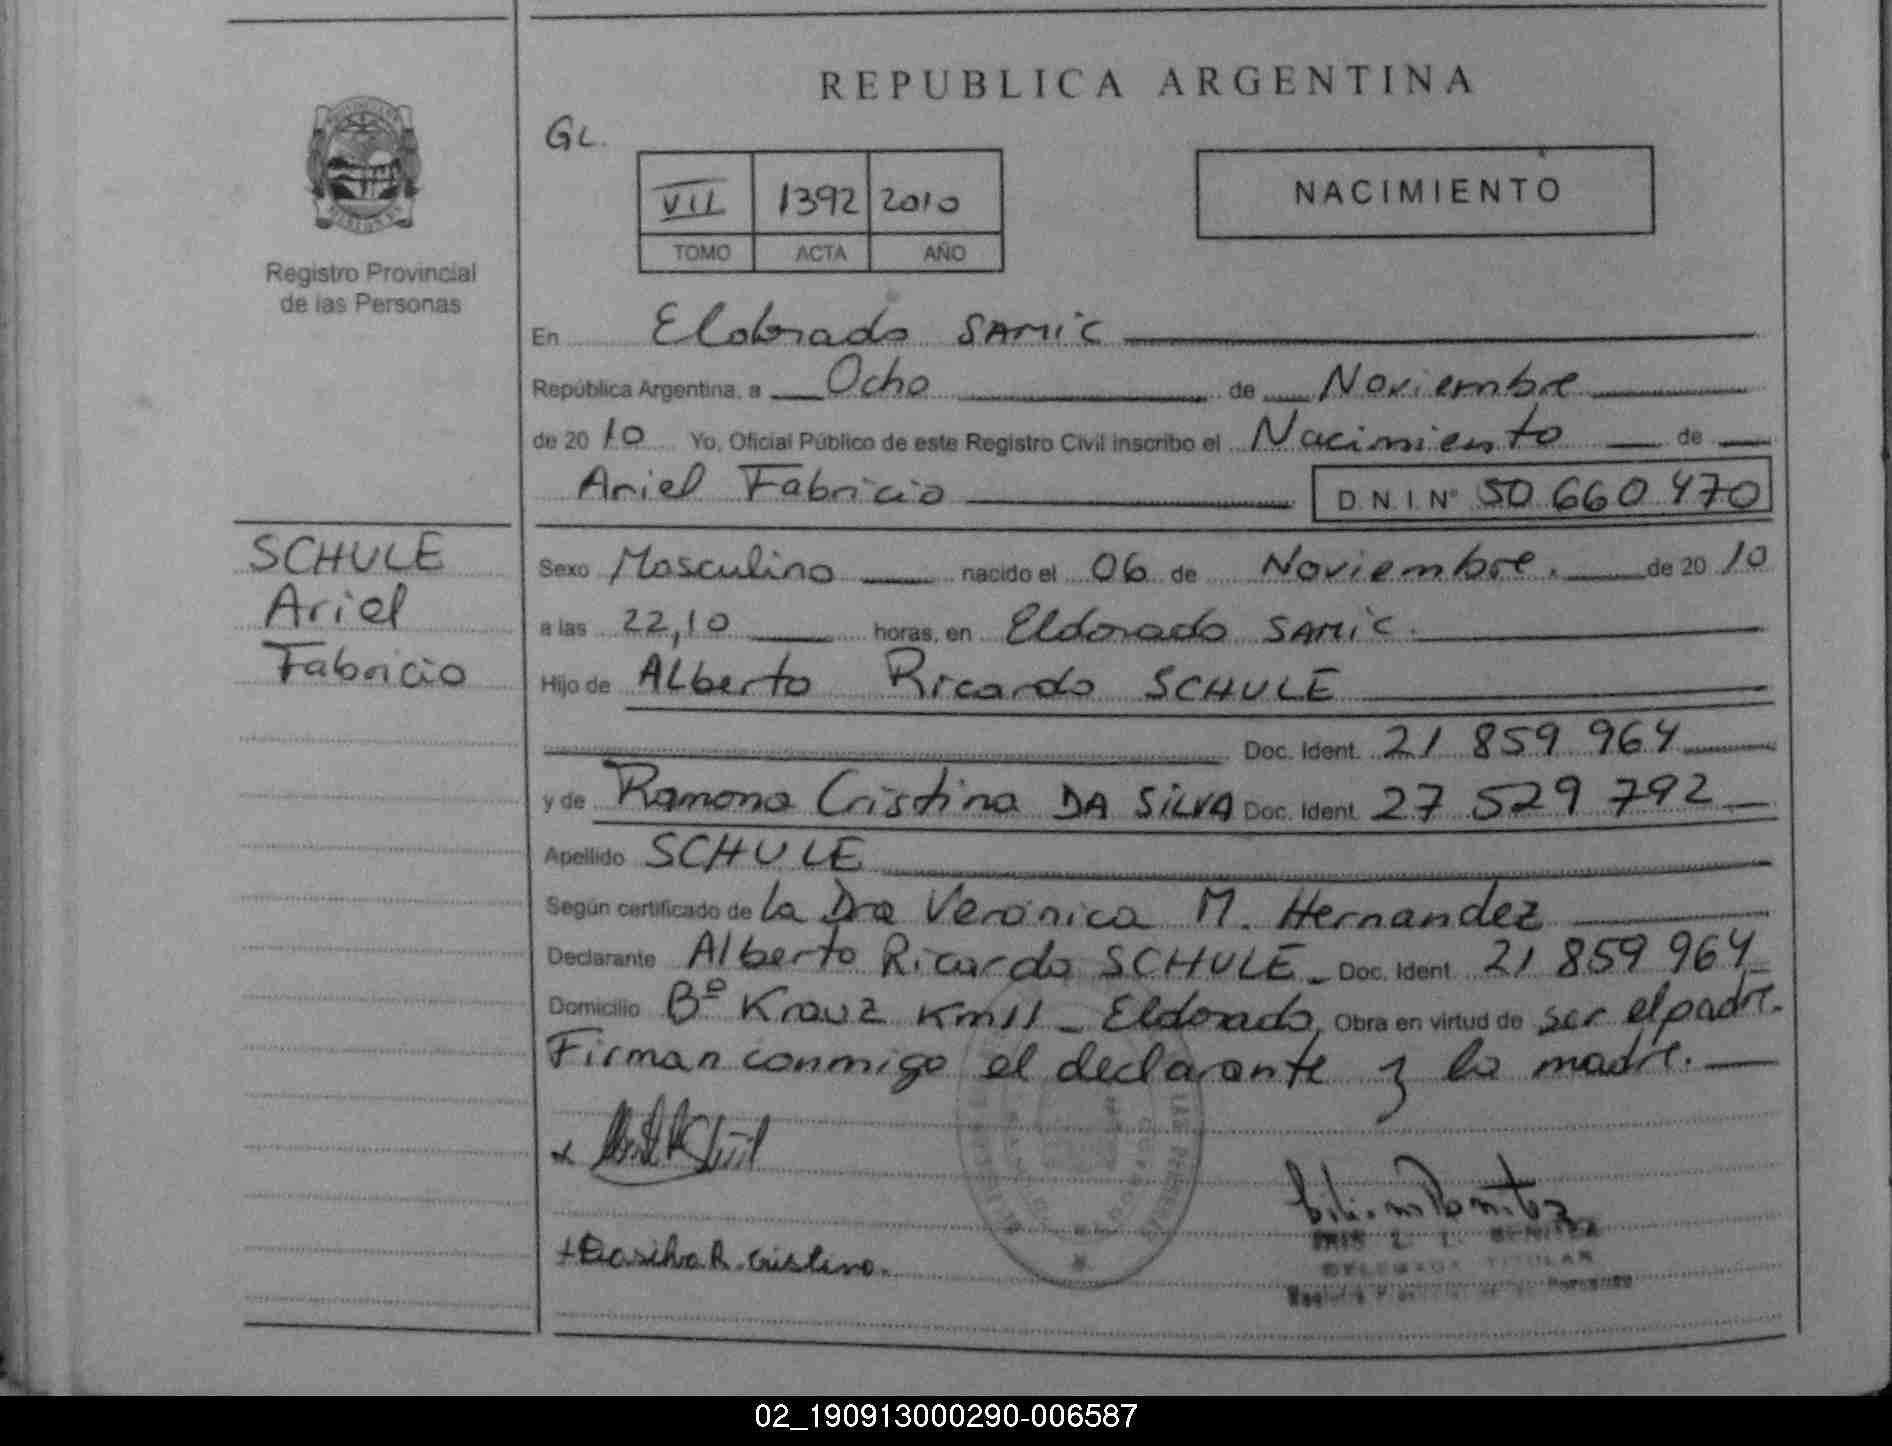 REPUBLICA ARGENTINA
GL.
VII 1392 2010
TOMO ACTA AÑO
NACIMIENTO
Registro Provincial
de las Personas
En Eldorado SAMIC
República Argentina, a Ocho de Noviembre
de 2010 Yo, Oficial Público de este Registro Civil inscribo el Nacimiento de
Ariel Fabricio D.N.I.Nº 50 660 470
SCHULE
Ariel
Fabricio
Sexo Masculino nacido el 06 de Noviembre. de 2010
a las 22,10 horas, en Eldorado SAMIC.
Hijo de Alberto Ricardo SCHULE
Doc. Ident. 21 859 964
y de Ramona Cristina DA SILVA Doc. Ident. 27 529 792
Apellido SCHULE
Según certificado de La Dra Veronica M. Hernandez
Declarante Alberto Ricardo SCHULE Doc. Ident. 21 859 964
Domicilio Bº Krauz Km11 - Eldorado, Obra en virtud de ser el padre.
Firman conmigo el declarante y la madre.
+ Dasilva R. Cristina.
BENITEZ
DELEGADA TITULAR
02_190913000290-006587